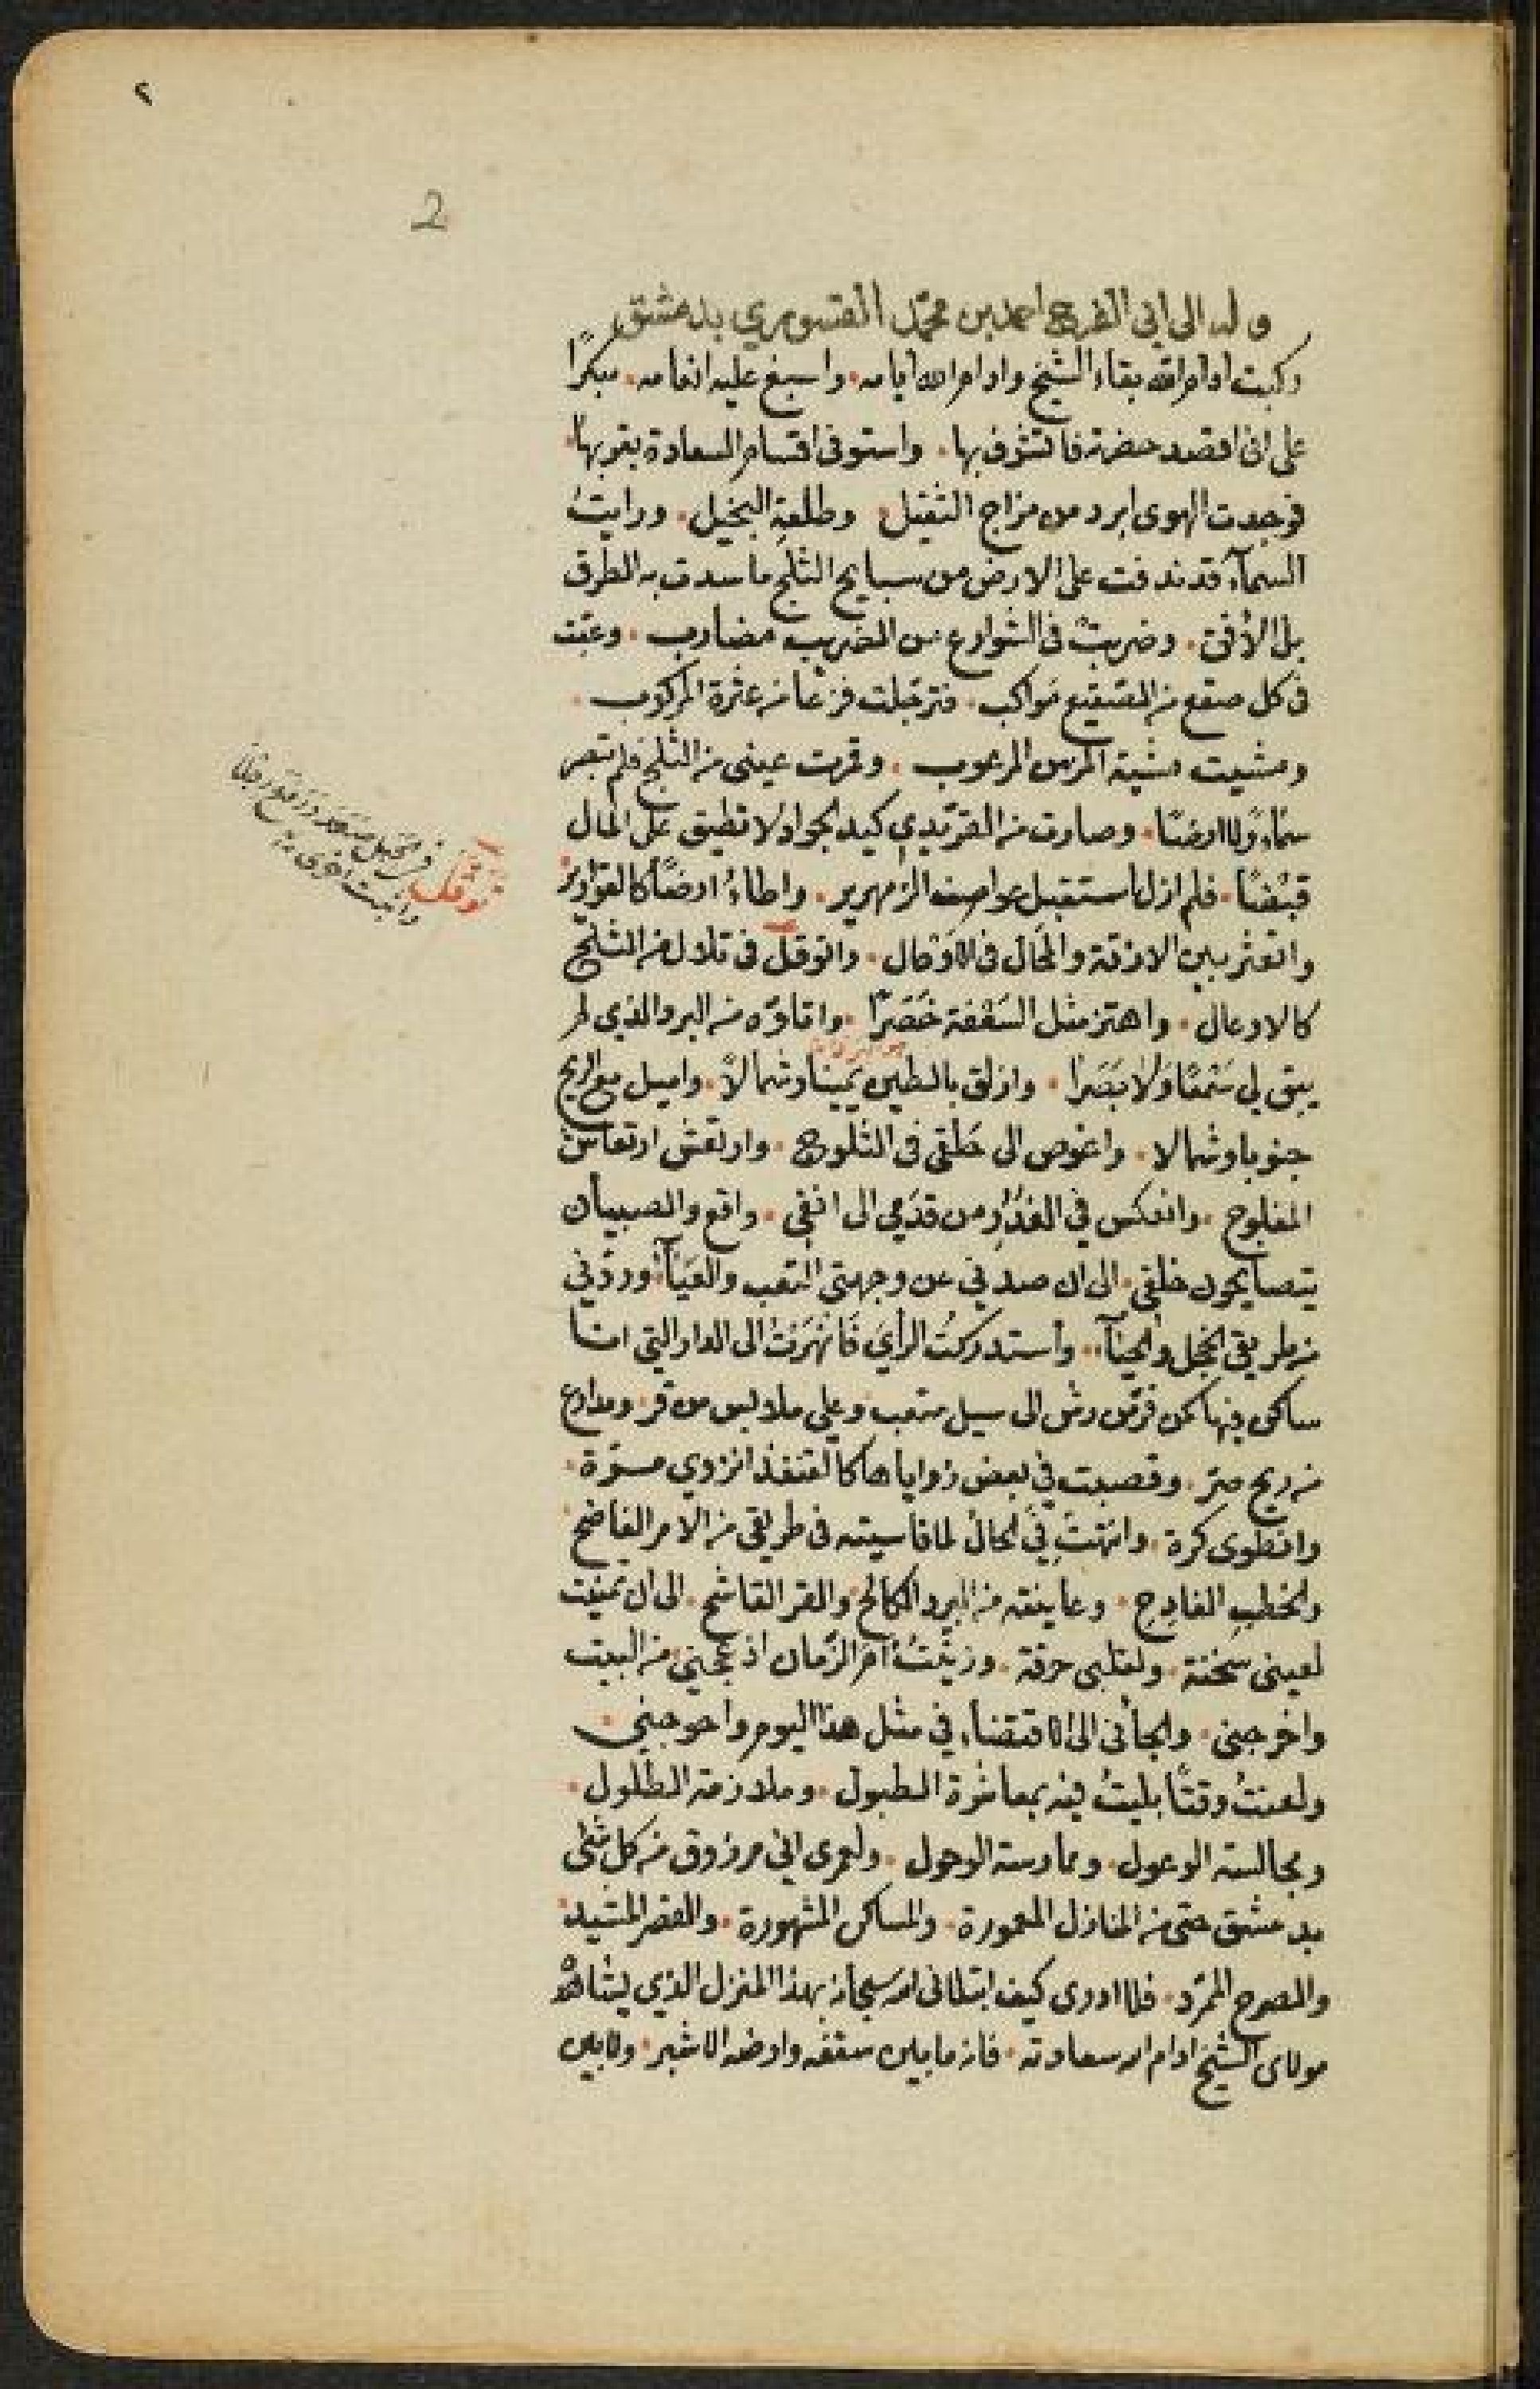 ٢
2
وله الى ابي الفرج احمد بن محمد القسومري بدمشق
ركبت ادام الله بقاء الشيخ وادام الله ايامه، واسبغ عليه انعامه، مبكرًا
على ان اقصد حضرته فاتشرف بها، واستوفى اقسام السعادة بقربها،
فوجدت الهوى ابرد من مزاج الثقيل، وطلعة البخيل، ورايتُ
السمآء قد ندفت على الارض من سبايخ الثلج ما سدت به الطرق
بل الأفق، وضربتْ في الشوارع من الضريب مضارب، وعبّت
في كل صقع من الصقيع مَواكب، فترجّلت فزعًا من عثرة المركوب،
ومشيت مشية المرعوب، وقمرت عيني من الثلج فلم تبصر
سَمَاءً ولا ارضًا، وصارت من القر يدي كيد الجواد لا تطيق على المال
قبْضًا، فلم ازل استقبل عواصف الزمهرير، واطاءُ ارضًا كالقوارير
واتعثر بين الازقة والمحال في الاوحال، واتوقّل في تلال من الثلج
كالاوعال، واهتز مثل السَعْفة خَصَرًا، واتاوّه من البرد الذي لم
يبق لي سَمْعًا وَلا بَصَرا، وازلق بالطين يَمينًا وشمالًا، واميل مع الريح
جنوبا وشمالا، واغوص الى حَلقي في الثلوج، وارتعش ارتعاش
المفلوج، وانعكس في الغدُر من قدَمي الى انفي، واقع والصبيان
يتصايحون خلفي، الى ان صدّني عن وجهتي التعب والعَيَآء، وردّني
من طريقي الخجل والحيآء، واستدركتُ الرأيَ فَانْهَزَمْتُ الى الدار التي انا
ساكن فيها كمن فرّ من رش الى سيل متعب، وعلي ملابس من قر، ومدارع
من ريح صَر، وقصبت في بعض زواياها كالقنفذ انزوي مرّة،
وانطوى كرة، وانتهتْ بي الحال لما قاسيته في طريقي من الامر الفاضح
والخطب الفادح، وعاينته من البرد الكالح، والقر القاشح، الى ان تمنيت
لعيني سخنة، ولقلبي حرقة، وذميتُ امر الزمان اذ عجني من البيت
واخرجني، والجأني الى الاقتضاء، في مثل هذا اليوم واحوجني،
ولعنتُ وقتًا بليتُ فيه بمعاشرة الطبول، وملازمة الطلول،
ومجالسة الوعول، وممارسة الوحول، ولعمري اني مرزوق من كل شئ
بدمشق حتى من المنازل المعمورة، والمساكن المشهورة، والقصر المشيد،
والصرح الممرّد، فلا ادري كيف ابتلاني الله سبحانه بهذا المنزل الذي يشاهده
مولاي الشيخ ادام الله سعادته، فانه ما بين سقفه وارضه الا شبر، ولا بين
توقل
في الجبل صعد